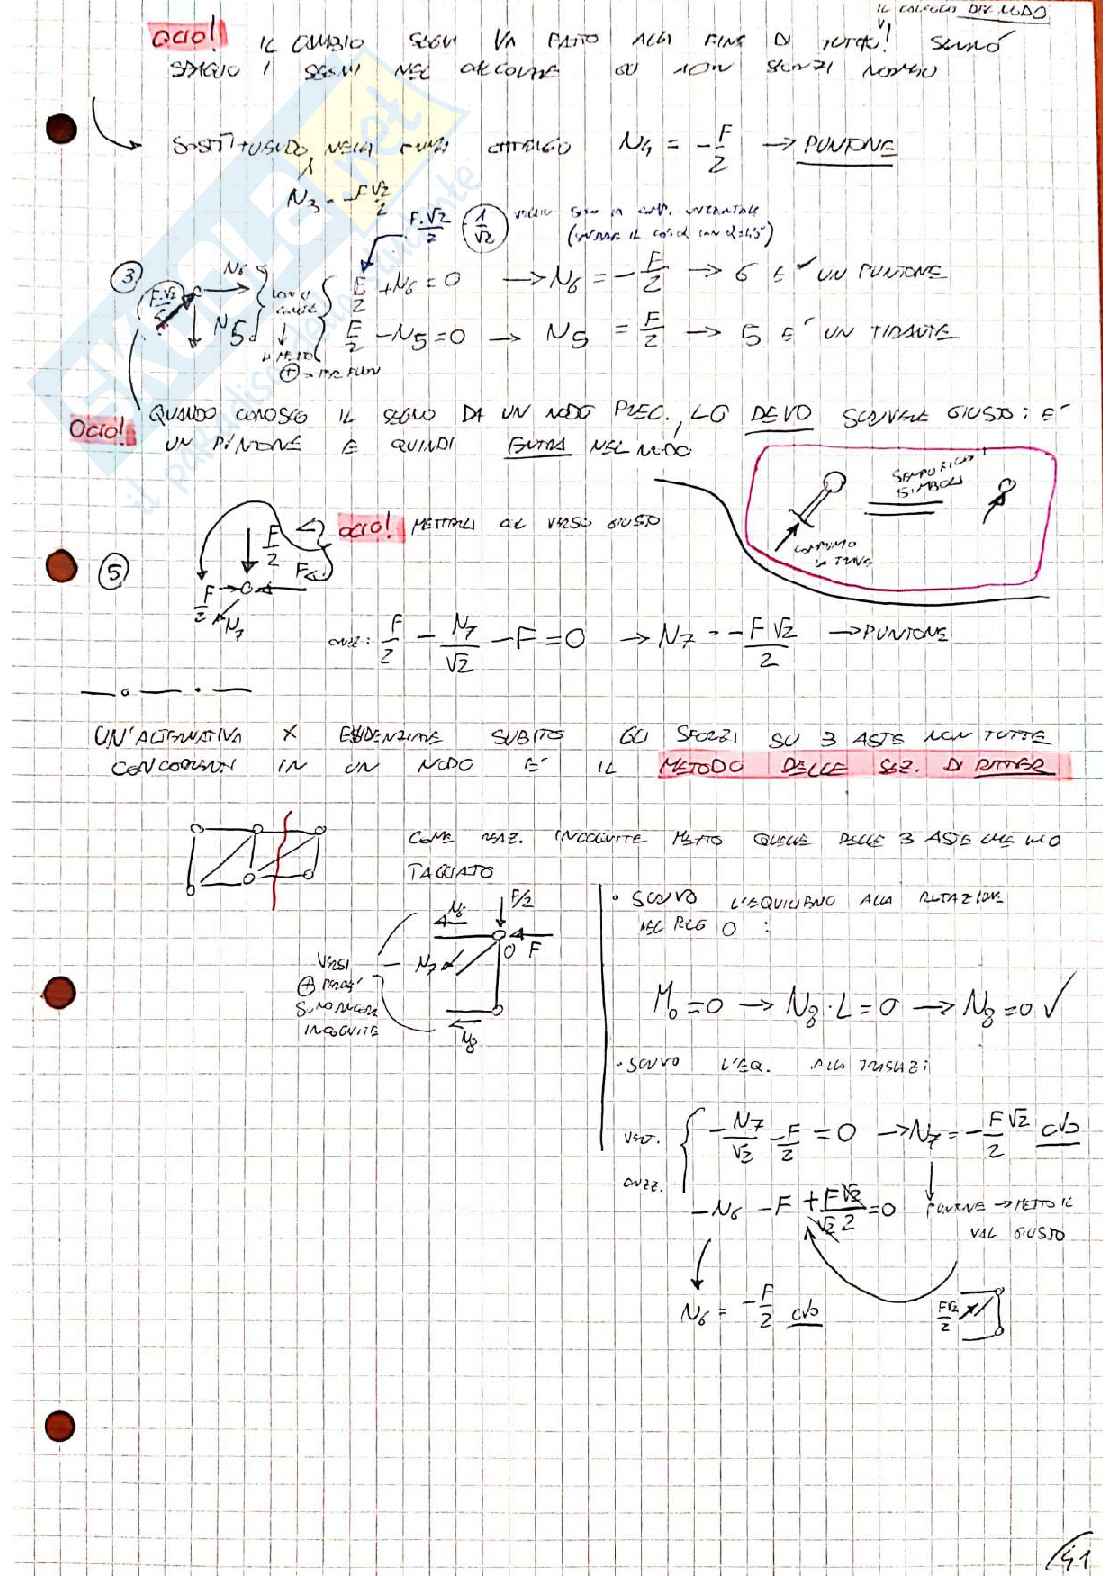 IL CALCOLO DEL NODO
OCIO! IL CAMBIO SEGNI VA FATTO ALLA FINE DI TUTTO! SENNÓ
SBAGLIO I SEGNI NEL CALCOLARE GLI SFORZI
SOSTITUENDO NELLA OTTENGO N4 = -F/2 → PUNTONE
N3 = -F√2/2
F·√2/2 · 1/√2
3 N6 F/2 + N6 = 0 → N6 = -F/2 → 6 E' UN PUNTONE
F·√2/2 N5 F/2 - N5 = 0 → N5 = F/2 → 5 E' UN TIRANTE
OCIO! QUANDO CONOSCO IL SEGNO DA UN NODO PREC., LO DEVO SCRIVERE GIUSTO: E'
UN PUNTONE E QUINDI ENTRA NEL NODO
SIMBOLI
OCIO! METTILI COL VERSO GIUSTO
5 F/2 F F/2 N7
ORIZZ: F/2 - N7/√2 - F = 0 → N7 = -F√2/2 → PUNTONE
UN'ALTERNATIVA X EVIDENZIARE SUBITO GLI SFORZI SU 3 ASTE NON TUTTE
CONCORRENTI IN UN NODO E' IL METODO DELLE SEZ. DI RITTER
COME REAZ. INCOGNITE METTO QUELLE DELLE 3 ASTE CHE HO
TAGLIATO
N6 F/2 N7 O F N8
VERSI
+ PERCHE'
SONO ANCORA
INCOGNITE
• SCRIVO L'EQUILIBRIO ALLA ROTAZIONE
NEL PTO O :
M₀ = 0 → N8·L = 0 → N8 = 0 ✓
• SCRIVO L'EQ. ALLA TRASLAZ:
VERT. -N7/√2 - F/2 = 0 → N7 = -F√2/2 cvd
ORIZZ. -N6 - F + F√2/√2 2 = 0 PUNTONE → METTO IL
VAL GIUSTO
N6 = -F/2 cvd
F√2/2
41